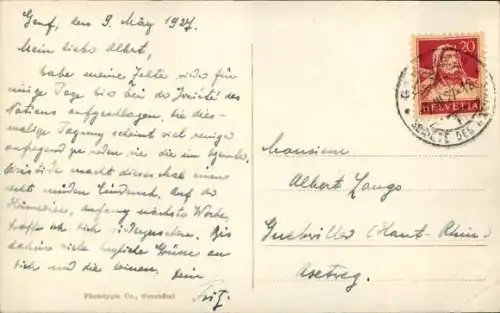 Genf, den 9. März 1927.
Mein lieber Albert,
habe meine Zelte wieder für
einige Tage hier bei der Société des
Nations aufgeschlagen. Die dies-
malige Tagung scheint viel weniger
aufregend zu werden wie die im September.
macht dieses Mal einen
recht müden Eindruck. Auf der
Heimreise, anfang nächste Woche,
hoffe ich dich wiederzusehen. Bis
dahin viele herzliche Grüsse an
dich und die deinen. Dein
Fritz.
Phototypie Co., Neuchâtel
20
HELVETIA
Monsieur
Albert Zango
Guebwiller (Haut-Rhin)